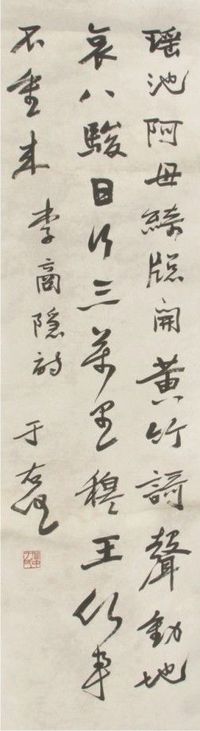 瑶池阿母綺窗開黃竹謌聲動地
哀八駿日行三萬里穆王何事
不重來 李商隐詩
于右任